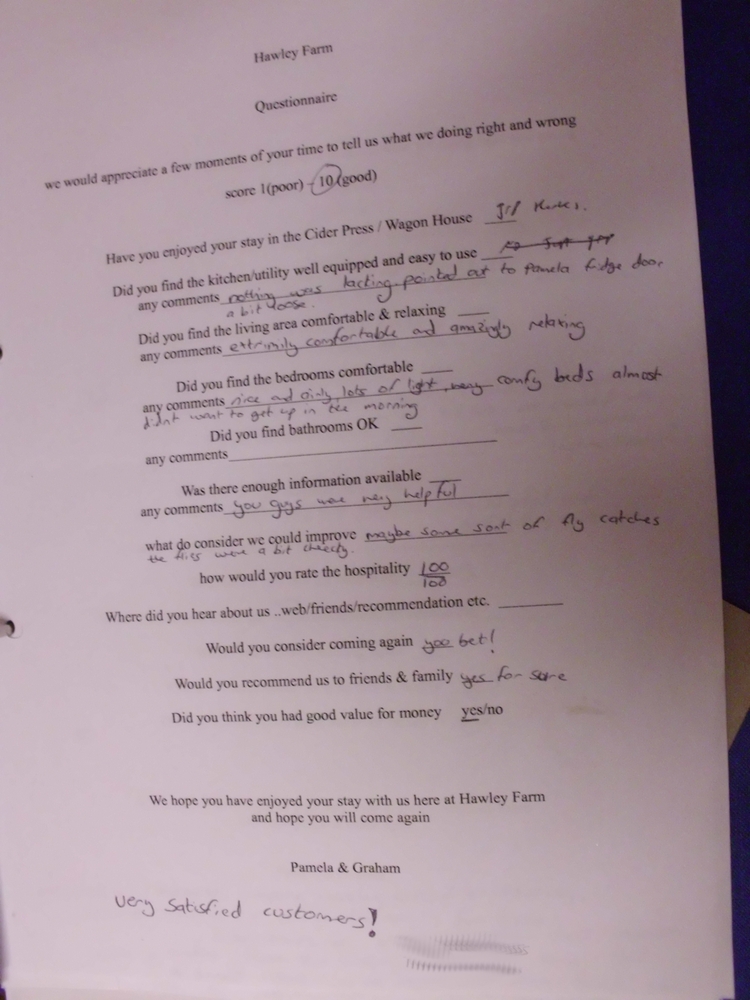 Hawley Farm
Questionnaire
we would appreciate a few moments of your time to tell us what we doing right and wrong
score 1(poor) - 10 (good)
Have you enjoyed your stay in the Cider Press / Wagon House
Did you find the kitchen/utility well equipped and easy to use
any comments nothing was lacking. pointed out to Pamela fridge door
a bit loose.
Did you find the living area comfortable & relaxing ____
any comments extrimily comfortable and amazingly relaxing
Did you find the bedrooms comfortable ____
any comments nice and airy, lots of light, very comfy beds almost
didnt want to get up in the morning
Did you find bathrooms OK ____
any comments____________________
Was there enough information available ____
any comments you guys were very helpful
what do consider we could improve maybe some sort of fly catches
the flies were a bit cheecky.
how would you rate the hospitality 100/100
Where did you hear about us ..web/friends/recommendation etc. ________
Would you consider coming again you bet!
Would you recommend us to friends & family yes for sure
Did you think you had good value for money yes/no
We hope you have enjoyed your stay with us here at Hawley Farm
and hope you will come again
Pamela & Graham
very satisfied customers!